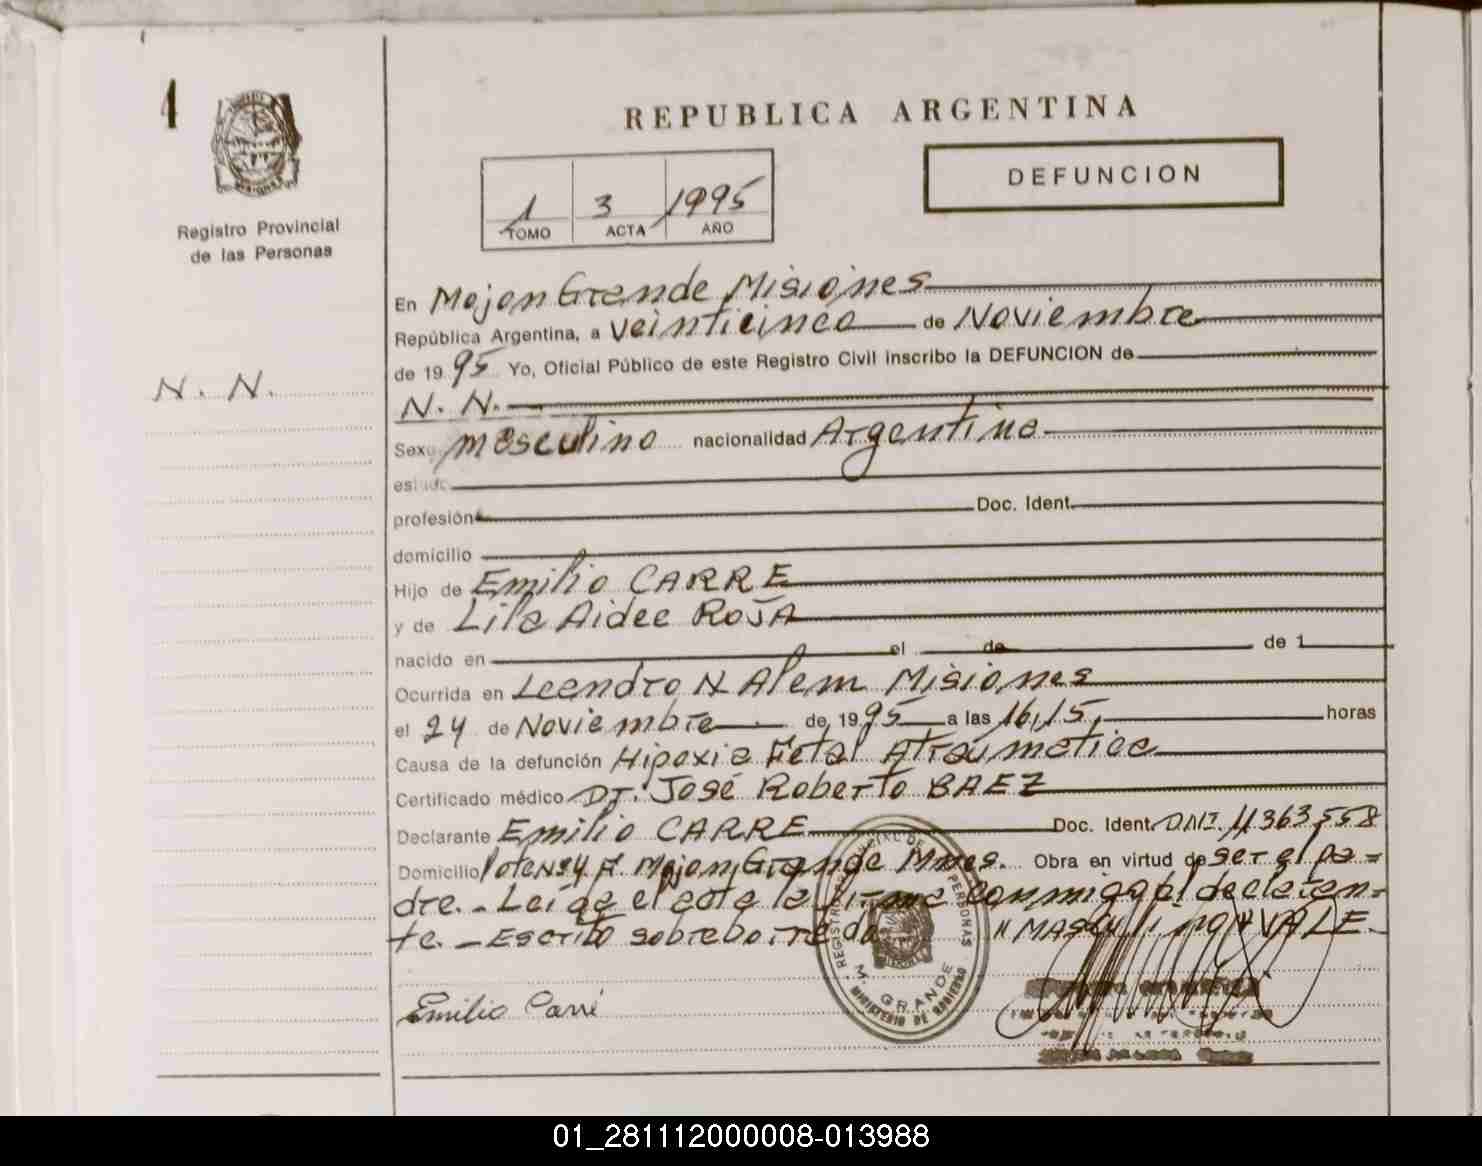 1
REPUBLICA ARGENTINA
DEFUNCION
1 3 1995
TOMO ACTA AÑO
Registro Provincial
de las Personas
En Mojon Grande Misiones
República Argentina, a Veinticinco de Noviembre
de 19 95 Yo, Oficial Público de este Registro Civil inscribo la DEFUNCION de
N. N.
N. N.
Sexo masculino nacionalidad Argentina
estado
profesión Doc. Ident.
domicilio
Hijo de Emilio CARRE
y de Lila Aidee ROJA
nacido en el de de 1
Ocurrida en Leandro N Alem Misiones
el 24 de Noviembre de 19 95 a las 16,15, horas
Causa de la defunción Hipoxia Fetal Atraumatica
Certificado médico Dr. José Roberto BAEZ
Declarante Emilio CARRE Doc. Ident. DNI. 11363,558
Domicilio Mojon Grande Mnes. Obra en virtud de ser el pa=
dre.- Leida el acta la firma conmigo el declaran=
te.- Escrito sobreborrado "MASCulino" VALE.-
Emilio Carré
REGISTRO PROVINCIAL DE LAS PERSONAS
M. GRANDE
MINISTERIO DE GOBIERNO
01_281112000008-013988